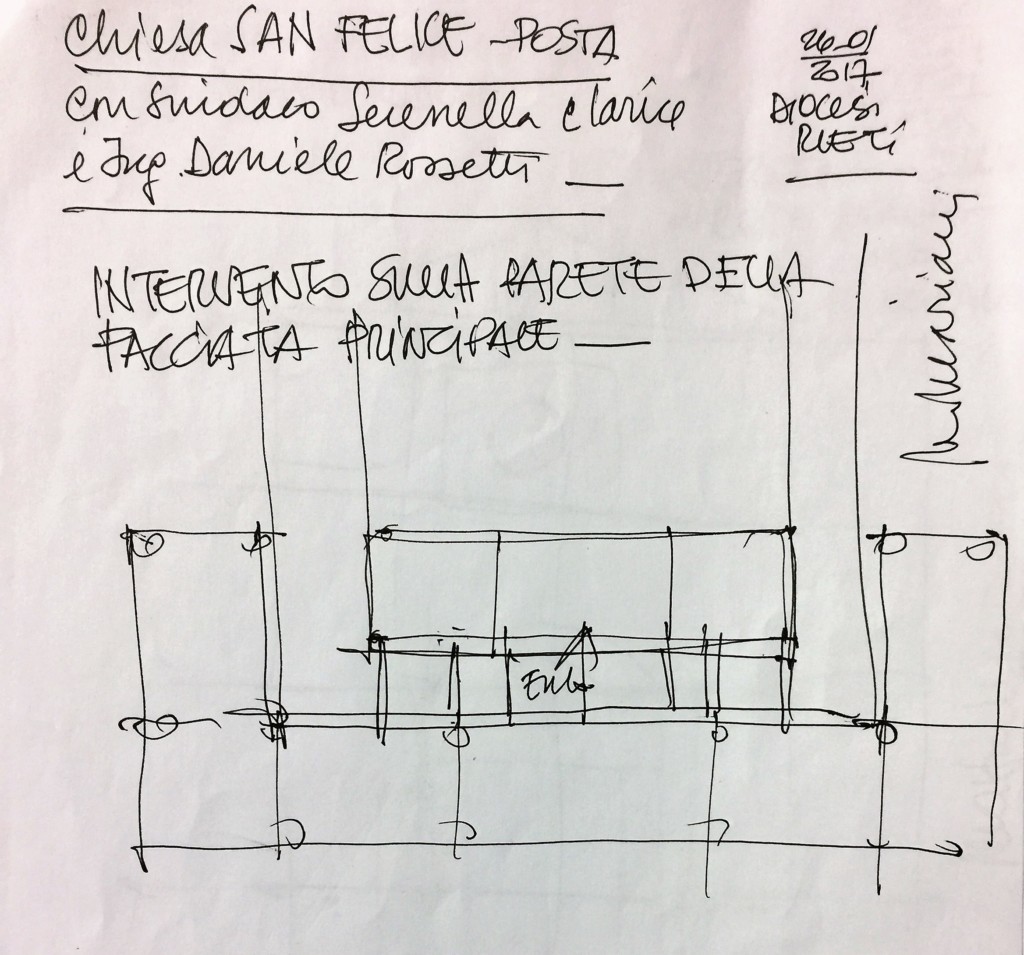 Chiesa SAN FELICE - POSTA
Con Sindaco Serenella Clarice
e Ing. Daniele Rossetti
26-01
2017
DIOCESI
RIETI
INTERVENTO SULLA PARETE DELLA
FACCIATA PRINCIPALE